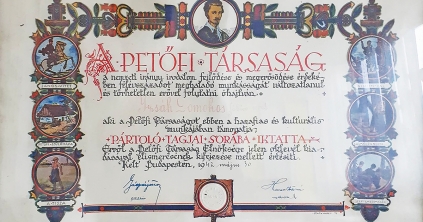 A PETŐFI TÁRSASÁG
a nemzeti irányu irodalom fejlődése és megerősödése érdeké-
ben félévszázadot meghaladó munkásságát változatlanul
és törhetetlen erővel folytatni óhajtván.
aki a Petőfi Társaságot ebben a hazafias és kulturális
munkájában támogatja;
PÁRTOLÓ TAGJAI SORÁBA IKTATTA
Erről a Petőfi Társaság Elnöksége jelen oklevél kia-
dásával elismerésének kifejezése mellett értesíti.
Kelt Budapesten, 1942 május